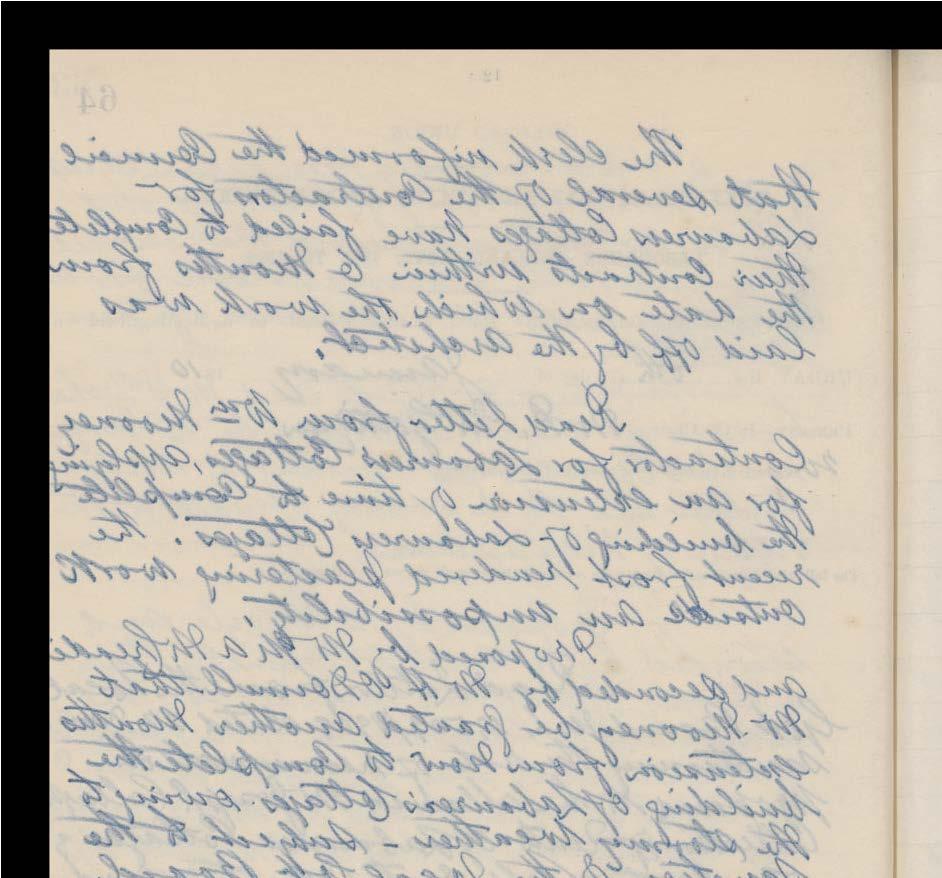 64
12
The Clerk informed the Council
that several of the Contractors for
Labourers Cottages have failed to Complete
their Contracts within 6 Months from
the date on which the work was
laid off by the Architect.
Read letter from Wm Mooney
Contractor for Labourers Cottages, applying
for an extension of time to Complete
the building of Labourers Cottages. the
recent frost rendered plastering work
outside an impossibility
Proposed by Mr
and seconded by Mr that
Mr Mooney be granted another Months
extension from Now to Complete the
building of Labourers Cottages owing to
the stormy Weather - Subject to the